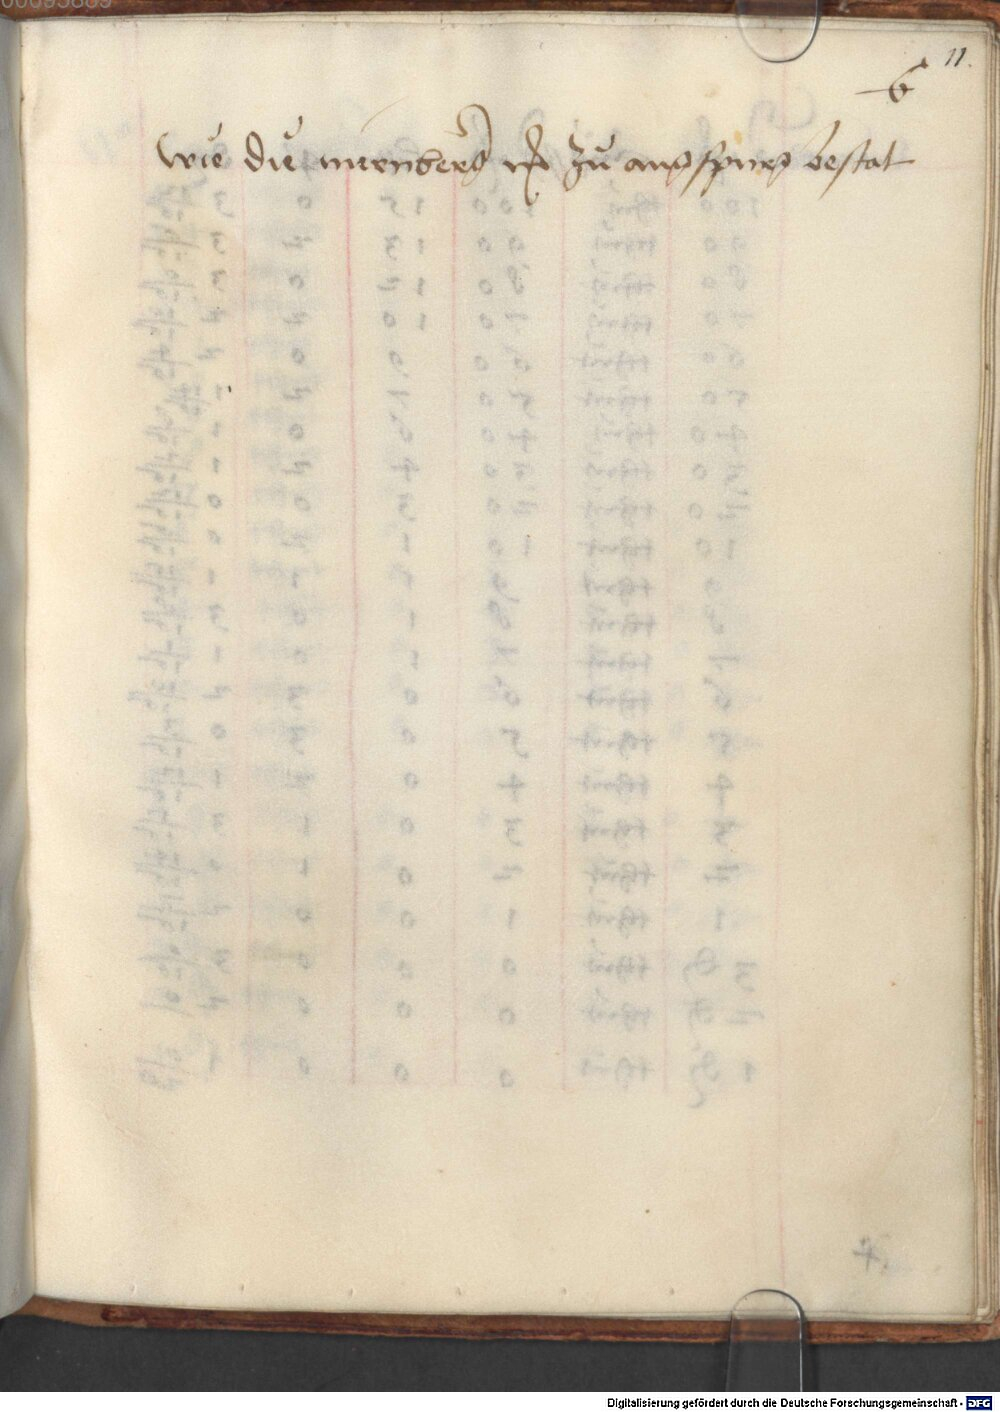 00095889
11.
6
Wie die nurnberg zu augspurg bestat
Digitalisierung gefördert durch die Deutsche Forschungsgemeinschaft - DFG